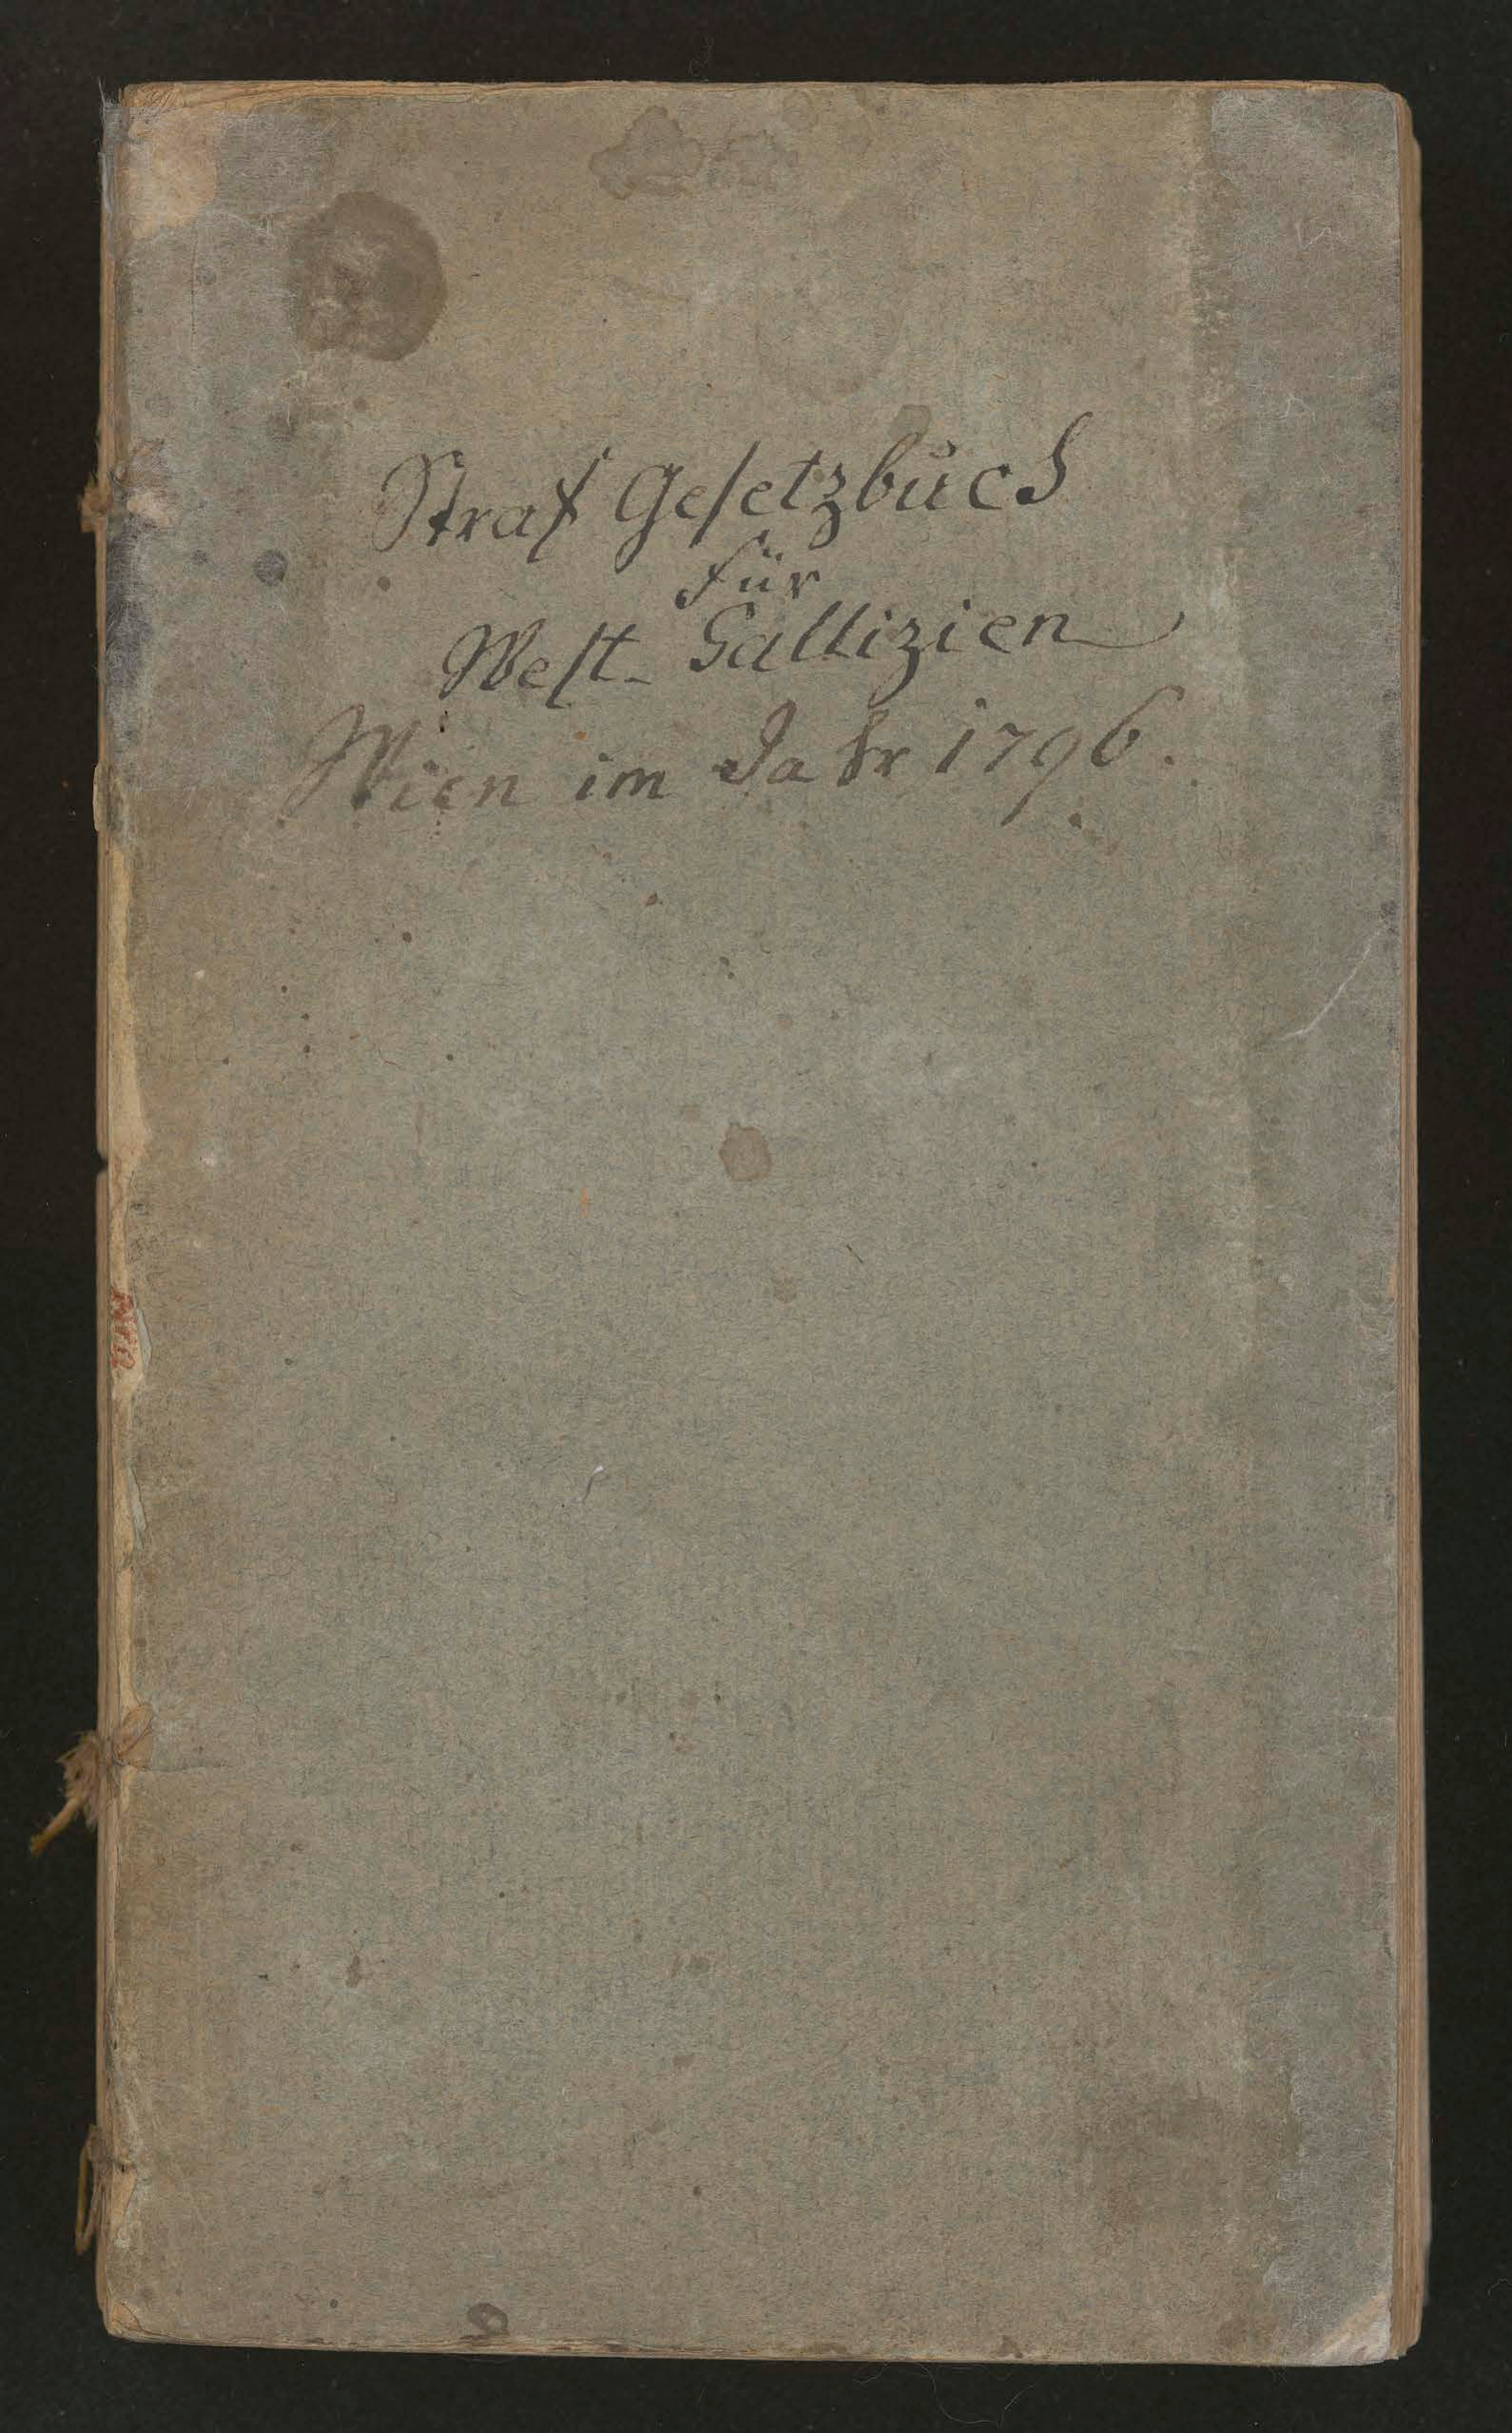 Straf Gesetzbuch
für
West- Gallizien
Wien im Jahr 1796.